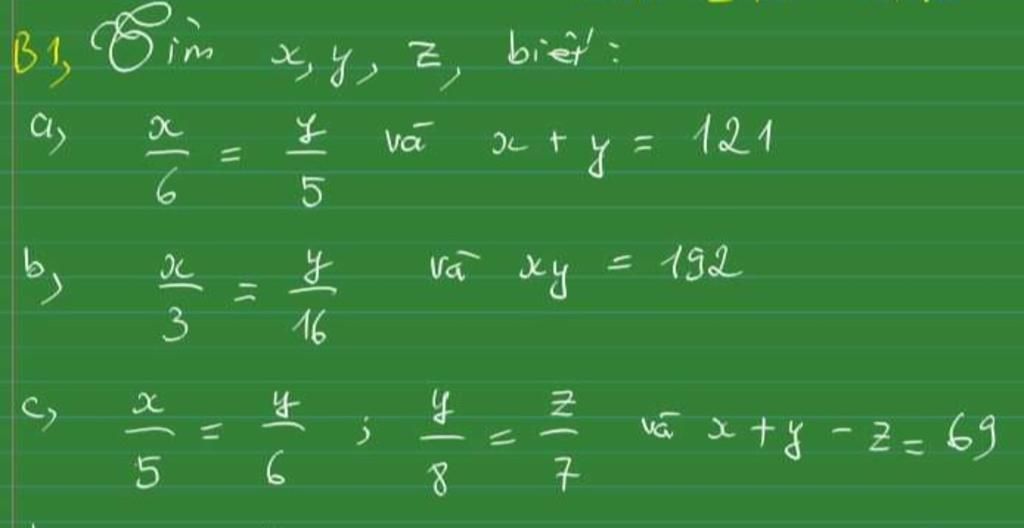 B1, Tìm x, y, z, biết:
a, x/6 = y/5 và x + y = 121
b, x/3 = y/16 và xy = 192
c, x/5 = y/6 ; y/8 = z/7 và x + y - z = 69